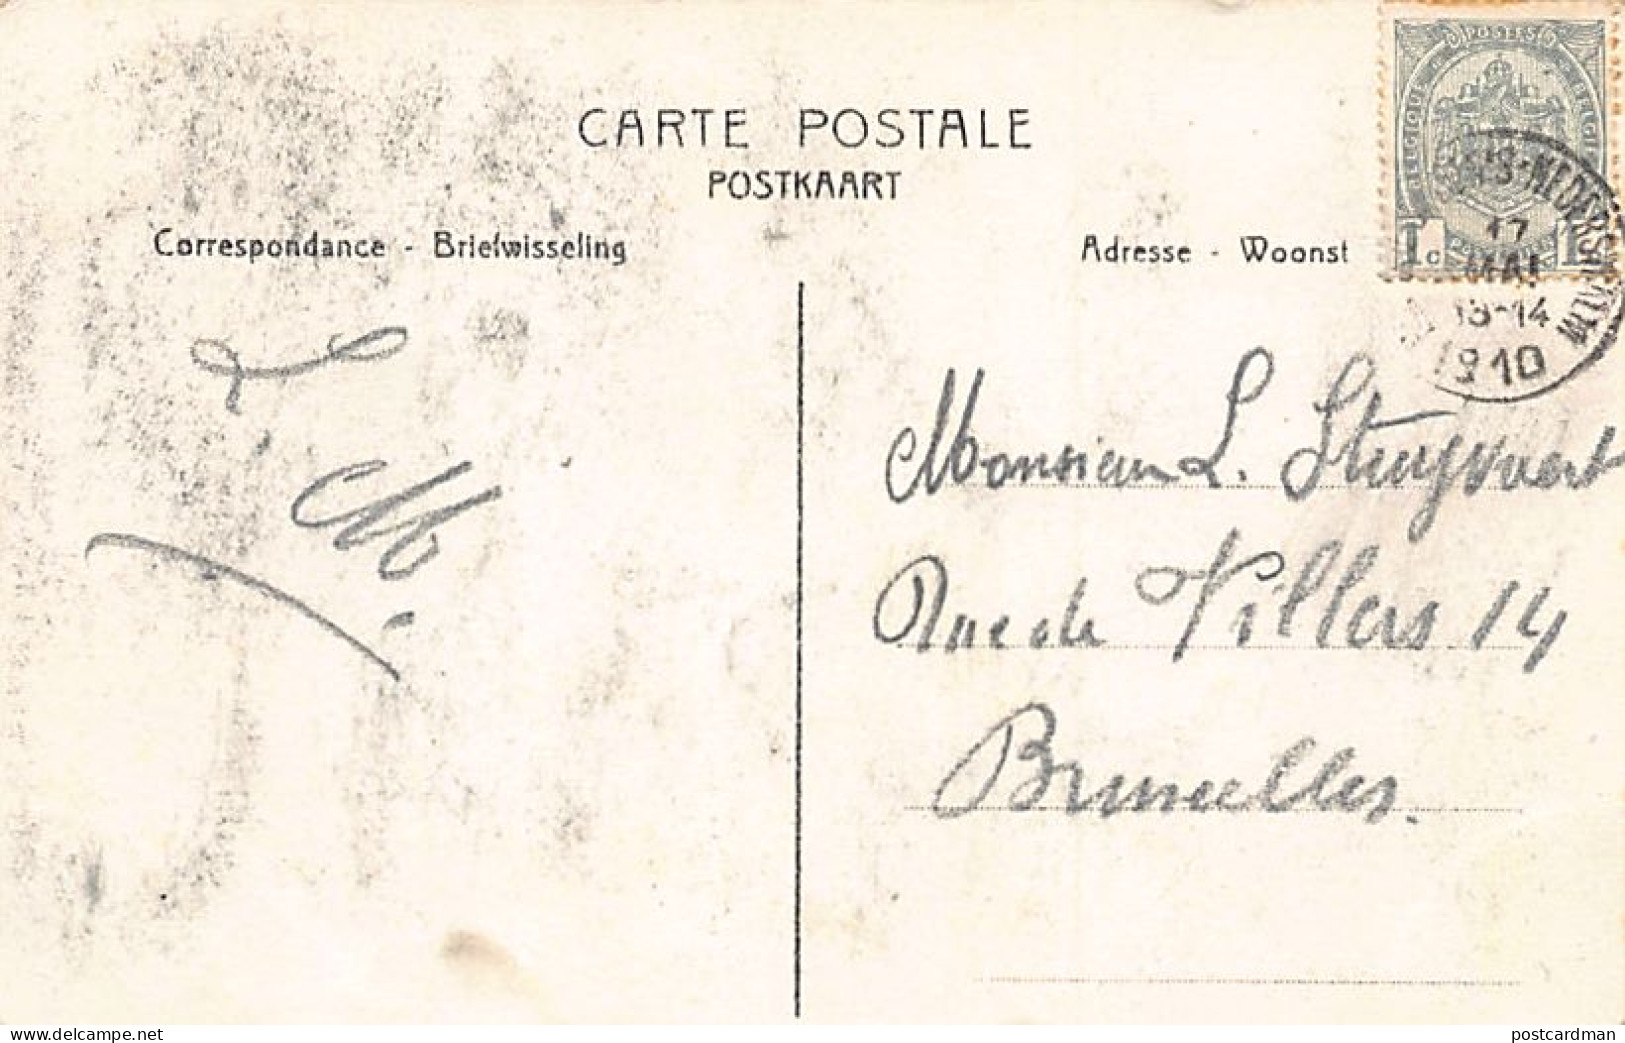 CARTE POSTALE
POSTKAART
Correspondance - Briefwisseling
Adresse - Woonst
POSTES
BELGIQUE
BELGIË
1 c 1
17
MAI
13-14
1910
Monsieur L. Stuyvaert
Rue de Villers 14
Bruxelles.
L
M.
www.delcampe.net
postcardman